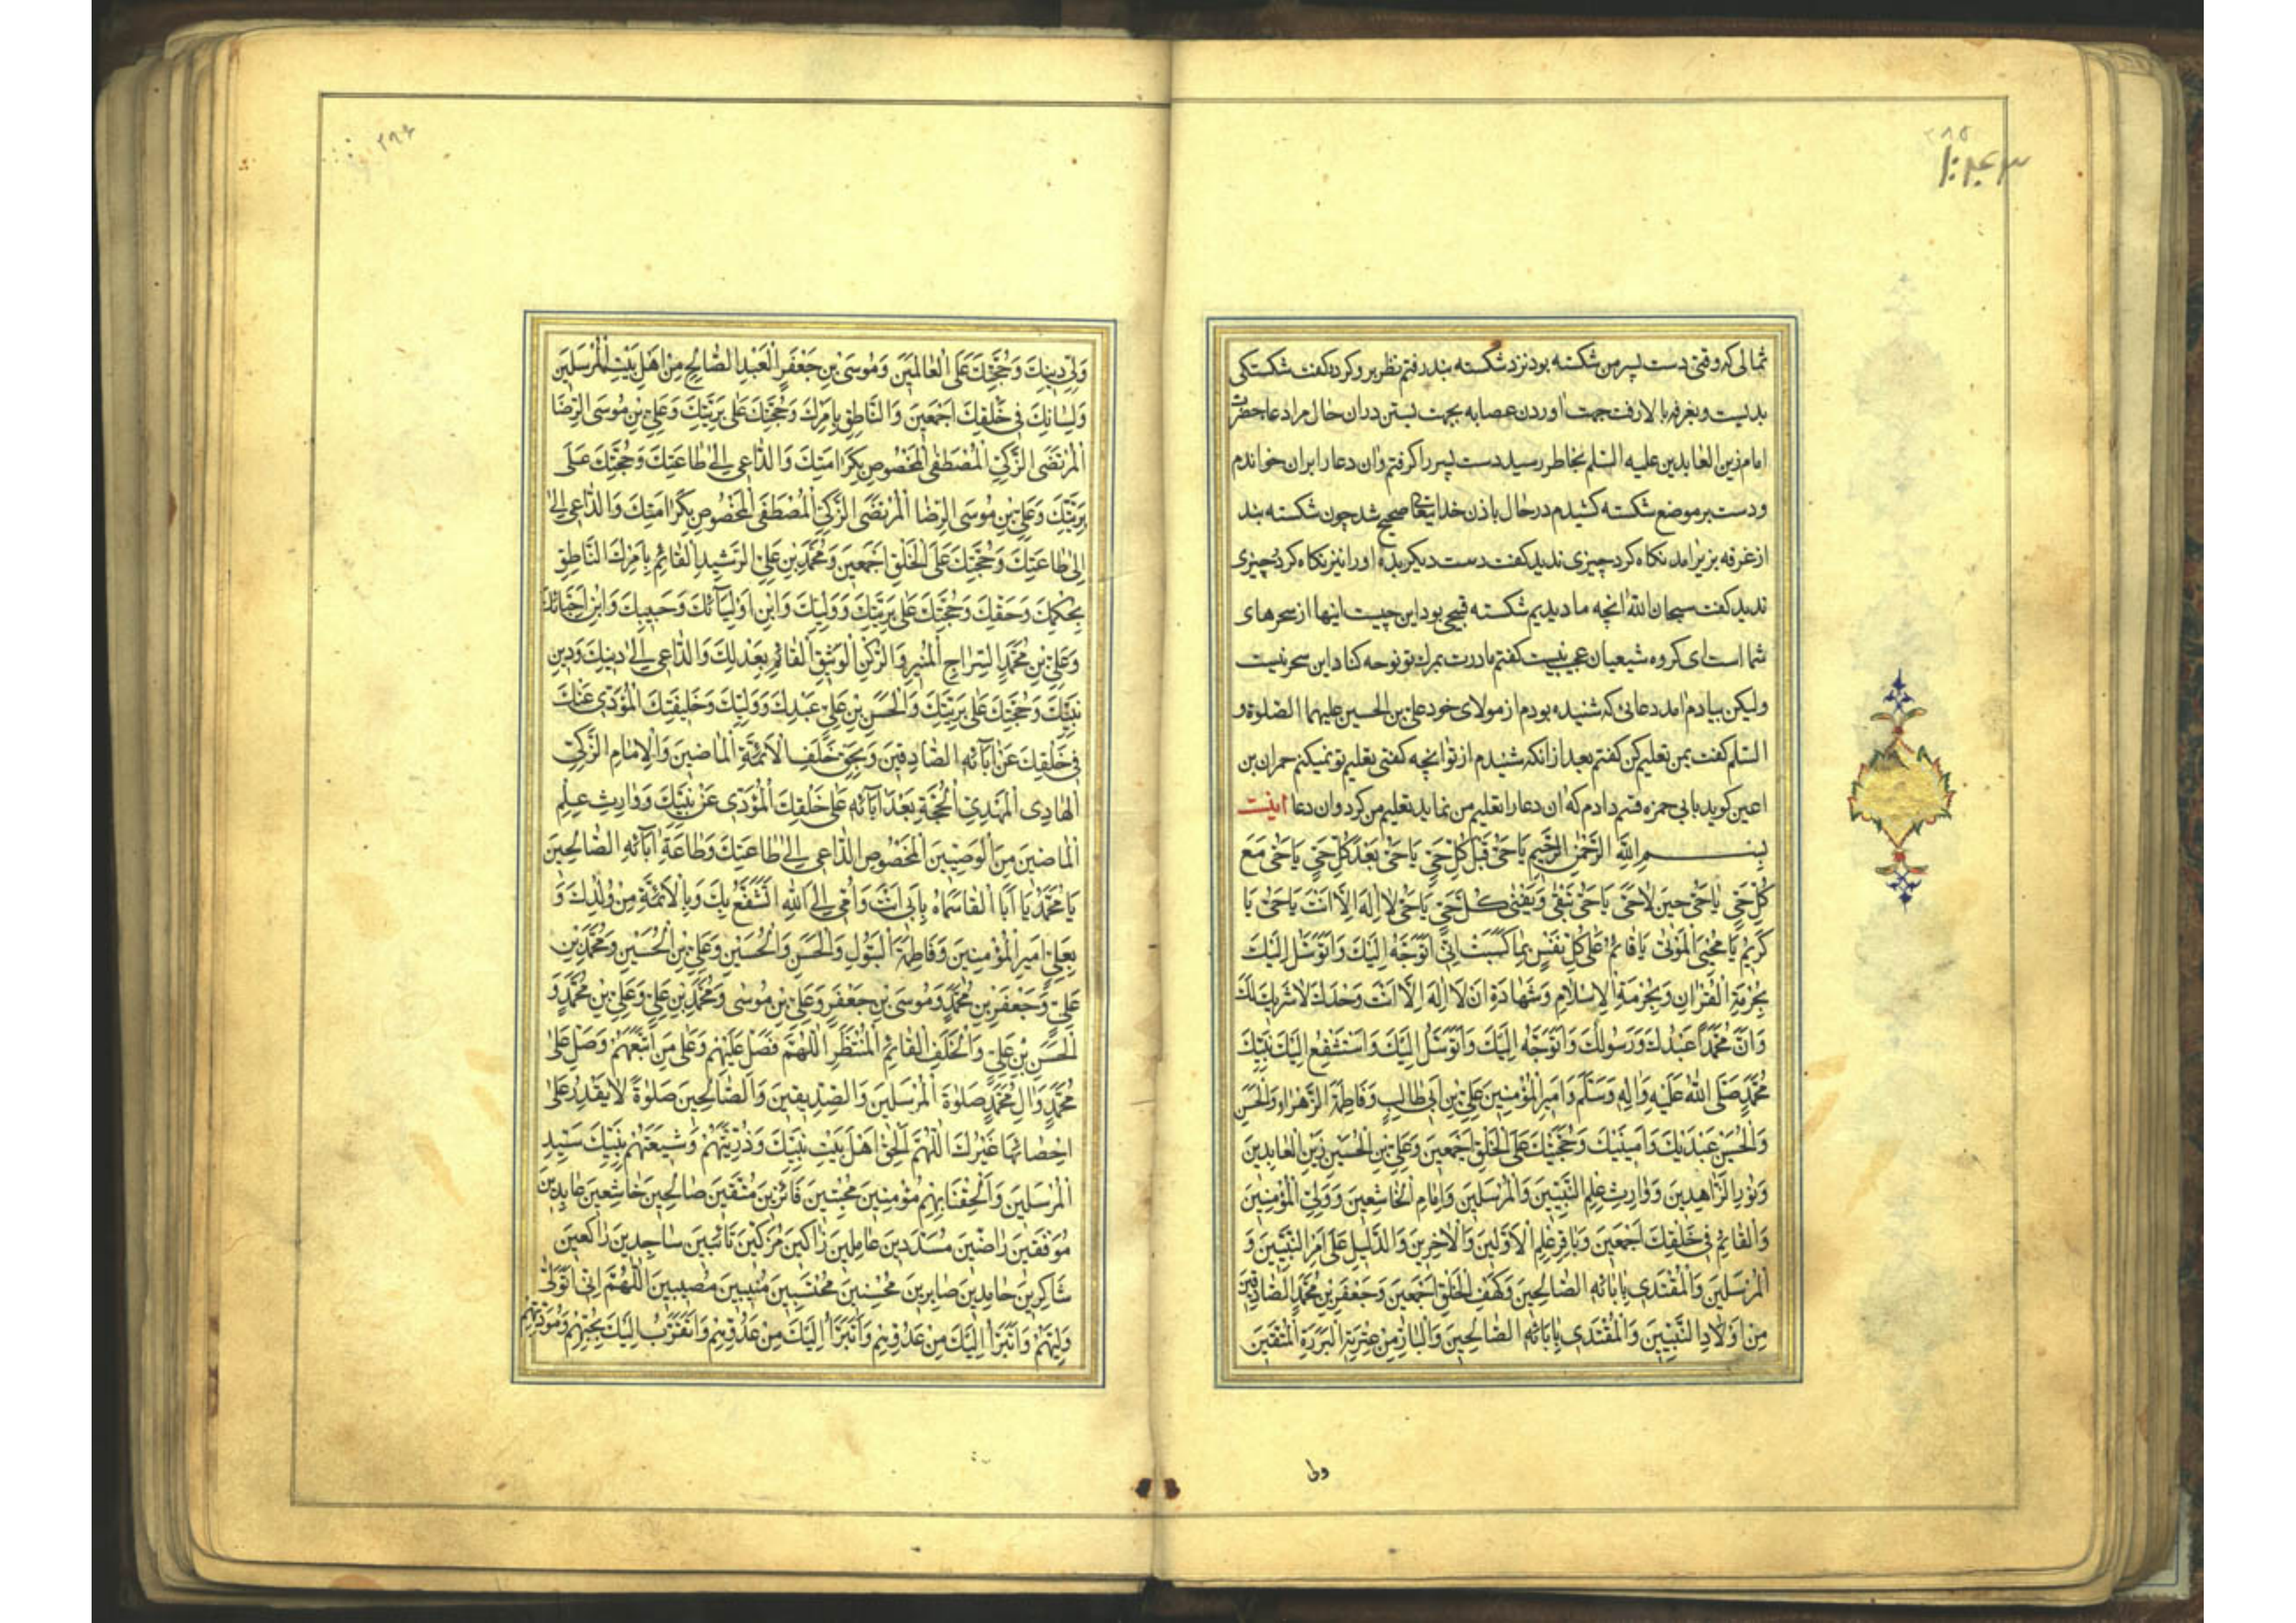 ۲۸۵
۱۰۲۴۳
ثمالی که وقتی دست پسر من شکسته بود نزد شکسته بند رفتم نظر برو کرده کفت شکستکی
بدیست و بغرفه بالا رفت جهت اوردن عصابه بجهت بستن دران حال مرا دعا حضرت
امام زین العابدین علیه السلم بخاطر رسید دست پسر را کرفتم وان دعا را بران خواندم
ودست بر موضع شکسته کشیدم درحال باذن خدایتعالی صحیح شد چون شکسته بند
از غرفه بزیر امد نکاه کرد چیزی ندید کفت دست دیکر بده او را نیز نکاه کرد چیزی
ندید کفت سبحان الله انچه ما دیدیم شکسته قبیحی بود این چیست اینها از سحرهای
شما است ای کروه شیعیان عجب نیست کفتم مادرت بمرك تو نوحه کناد این سحر نیست
ولیکن بیادم امد دعائی که شنیده بودم از مولای خود علی بن الحسین علیهما الصلوة و
السلم کفت بمن تعلیم کن کفتم بعد ازانکه شنیدم از تو انچه کفتی بتعلیم تو نمیکنم حمران بن
اعین کوید بابی حمزه قسم دادم که ان دعا را تعلیم من نماید تعلیم من کرد وان دعا اینست
بِسْمِ اللّٰهِ الرَّحْمٰنِ الرَّحِيمِ يَا حَيُّ قَبْلَ كُلِّ حَيٍّ يَا حَيُّ بَعْدَ كُلِّ حَيٍّ يَا حَيُّ مَعَ
كُلِّ حَيٍّ يَا حَيُّ حِينَ لَا حَيَّ يَا حَيُّ يَبْقٰى وَيَفْنٰى كُلُّ حَيٍّ يَا حَيُّ لَا اِلٰهَ اِلَّا اَنْتَ يَا حَيُّ يَا
كَرِيمُ يَا مُحْيِيَ الْمَوْتٰى يَا قَائِمُ عَلٰى كُلِّ نَفْسٍ بِمَا كَسَبَتْ اِنِّي اَتَوَجَّهُ اِلَيْكَ وَاَتَوَسَّلُ اِلَيْكَ
بِحُرْمَةِ الْقُرْاٰنِ وَبِحُرْمَةِ الْاِسْلَامِ وَشَهَادَةِ اَنْ لَا اِلٰهَ اِلَّا اَنْتَ وَحْدَكَ لَا شَرِيكَ لَكَ
وَاَنَّ مُحَمَّدًا عَبْدُكَ وَرَسُولُكَ وَاَتَوَجَّهُ اِلَيْكَ وَاَتَوَسَّلُ اِلَيْكَ وَاَسْتَشْفِعُ اِلَيْكَ بِنَبِيِّكَ
مُحَمَّدٍ صَلَّى اللّٰهُ عَلَيْهِ وَاٰلِهِ وَسَلَّمَ وَاَمِيرِ الْمُؤْمِنِينَ عَلِيِّ بْنِ اَبِي طَالِبٍ وَفَاطِمَةَ الزَّهْرَاءِ وَالْحَسَنِ
وَالْحُسَيْنِ عَبْدَيْكَ وَاَمِينَيْكَ وَحُجَّتَيْكَ عَلَى الْخَلْقِ اَجْمَعِينَ وَعَلِيِّ بْنِ الْحُسَيْنِ زَيْنِ الْعَابِدِينَ
وَنُورِ الزَّاهِدِينَ وَوَارِثِ عِلْمِ النَّبِيِّينَ وَالْمُرْسَلِينَ وَاِمَامِ الْخَاشِعِينَ وَوَلِيِّ الْمُؤْمِنِينَ
وَالْقَائِمِ فِي خَلْقِكَ اَجْمَعِينَ وَبَاقِرِ عِلْمِ الْاَوَّلِينَ وَالْاٰخِرِينَ وَالدَّلِيلِ عَلٰى اَمْرِ النَّبِيِّينَ وَ
الْمُرْسَلِينَ وَالْمُقْتَدِي بِاٰبَائِهِ الصَّالِحِينَ وَكَهْفِ الْخَلْقِ اَجْمَعِينَ وَجَعْفَرِ بْنِ مُحَمَّدٍ الصَّادِقِ
مِنْ اَوْلَادِ النَّبِيِّينَ وَالْمُقْتَدِي بِاٰبَائِهِ الصَّالِحِينَ وَالْبَارِّ مِنْ عِتْرَتِهِ الْبَرَرَةِ الْمُتَّقِينَ
ولی
۲۸۶
وَلِيِّ دِينِكَ وَحُجَّتِكَ عَلَى الْعَالَمِينَ وَمُوسَى بْنِ جَعْفَرٍ الْعَبْدِ الصَّالِحِ مِنْ اَهْلِ بَيْتِ الْمُرْسَلِينَ
وَلِسَانِكَ فِي خَلْقِكَ اَجْمَعِينَ وَالنَّاطِقِ بِاَمْرِكَ وَحُجَّتِكَ عَلٰى بَرِيَّتِكَ وَعَلِيِّ بْنِ مُوسَى الرِّضَا
الْمُرْتَضَى الزَّكِيِّ الْمُصْطَفَى الْمَخْصُوصِ بِكَرَامَتِكَ وَالدَّاعِي اِلٰى طَاعَتِكَ وَحُجَّتِكَ عَلٰى
بَرِيَّتِكَ وَعَلِيِّ بْنِ مُوسَى الرِّضَا الْمُرْتَضَى الزَّكِيِّ الْمُصْطَفَى الْمَخْصُوصِ بِكَرَامَتِكَ وَالدَّاعِي اِلٰى
اِلٰى طَاعَتِكَ وَحُجَّتِكَ عَلَى الْخَلْقِ اَجْمَعِينَ وَمُحَمَّدِ بْنِ عَلِيٍّ الرَّشِيدِ الْقَائِمِ بِاَمْرِكَ النَّاطِقِ
بِحُكْمِكَ وَحَقِّكَ وَحُجَّتِكَ عَلٰى بَرِيَّتِكَ وَوَلِيِّكَ وَابْنِ اَوْلِيَائِكَ وَحَبِيبِكَ وَابْنِ اَحِبَّائِكَ
وَعَلِيِّ بْنِ مُحَمَّدٍ السِّرَاجِ الْمُنِيرِ وَالرُّكْنِ الْوَثِيقِ الْقَائِمِ بِعَدْلِكَ وَالدَّاعِي اِلٰى دِينِكَ وَدِينِ
نَبِيِّكَ وَحُجَّتِكَ عَلٰى بَرِيَّتِكَ وَالْحَسَنِ بْنِ عَلِيٍّ عَبْدِكَ وَوَلِيِّكَ وَخَلِيفَتِكَ الْمُؤَدِّي عَنْكَ
فِي خَلْقِكَ عَنْ اٰبَائِهِ الصَّادِقِينَ وَبِحَقِّ خَلَفِ الْاَئِمَّةِ الْمَاضِينَ وَالْاِمَامِ الزَّكِيِّ
الْهَادِي الْمَهْدِيِّ الْحُجَّةِ بَعْدَ اٰبَائِهِ عَلٰى خَلْقِكَ الْمُؤَدِّي عَنْ نَبِيِّكَ وَوَارِثِ عِلْمِ
الْمَاضِينَ مِنَ الْوَصِيِّينَ الْمَخْصُوصِ الدَّاعِي اِلٰى طَاعَتِكَ وَطَاعَةِ اٰبَائِهِ الصَّالِحِينَ
يَا مُحَمَّدُ يَا اَبَا الْقَاسِمَاهُ بِاَبِي اَنْتَ وَاُمِّي اِلَى اللّٰهِ اَتَشَفَّعُ بِكَ وَبِالْاَئِمَّةِ مِنْ وُلْدِكَ وَ
بِعَلِيٍّ اَمِيرِ الْمُؤْمِنِينَ وَفَاطِمَةَ الْبَتُولِ وَالْحَسَنِ وَالْحُسَيْنِ وَعَلِيِّ بْنِ الْحُسَيْنِ وَمُحَمَّدِ بْنِ
عَلِيٍّ وَجَعْفَرِ بْنِ مُحَمَّدٍ وَمُوسَى بْنِ جَعْفَرٍ وَعَلِيِّ بْنِ مُوسٰى وَمُحَمَّدِ بْنِ عَلِيٍّ وَعَلِيِّ بْنِ مُحَمَّدٍ وَ
الْحَسَنِ بْنِ عَلِيٍّ وَالْخَلَفِ الْقَائِمِ الْمُنْتَظَرِ اَللّٰهُمَّ فَصَلِّ عَلَيْهِمْ وَعَلٰى مَنِ اتَّبَعَهُمْ وَصَلِّ عَلٰى
مُحَمَّدٍ وَاٰلِ مُحَمَّدٍ صَلٰوةَ الْمُرْسَلِينَ وَالصِّدِّيقِينَ وَالصَّالِحِينَ صَلٰوةً لَا يَقْدِرُ عَلٰى
اِحْصَائِهَا غَيْرُكَ اَللّٰهُمَّ اَلْحِقْ اَهْلَ بَيْتِ نَبِيِّكَ وَذُرِّيَّتَهُمْ وَشِيعَتَهُمْ بِنَبِيِّكَ سَيِّدِ
الْمُرْسَلِينَ وَاَلْحِقْنَا بِهِمْ مُؤْمِنِينَ مُخْبِتِينَ فَائِزِينَ مُتَّقِينَ صَالِحِينَ خَاشِعِينَ عَابِدِينَ
مُوَفَّقِينَ رَاضِينَ مُسَدَّدِينَ عَامِلِينَ زَاكِينَ مُزَكَّيْنَ تَائِبِينَ سَاجِدِينَ رَاكِعِينَ
شَاكِرِينَ حَامِدِينَ صَابِرِينَ مُحْسِنِينَ مُحْتَسِبِينَ مُنِيبِينَ مُصِيبِينَ اَللّٰهُمَّ اِنِّي اَتَوَلّٰى
وَلِيَّهُمْ وَاَتَبَرَّاُ اِلَيْكَ مِنْ عَدُوِّهِمْ وَاَتَبَرَّاُ اِلَيْكَ مِنْ عَدُوِّهِمْ وَاَتَقَرَّبُ اِلَيْكَ بِحُبِّهِمْ وَمَوَدَّتِهِمْ